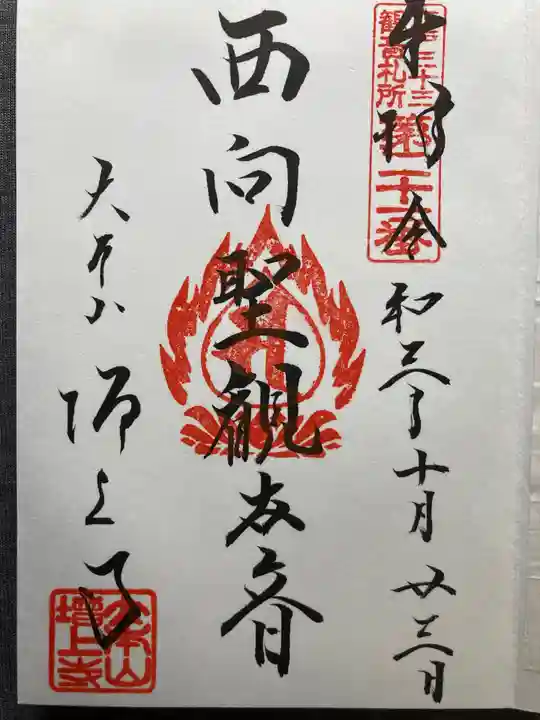 奉拝
令和三年十月廿三日
西国三十三
観音札所
第二十一番
西向聖観世音
大本山
増上寺
大本山
増上寺